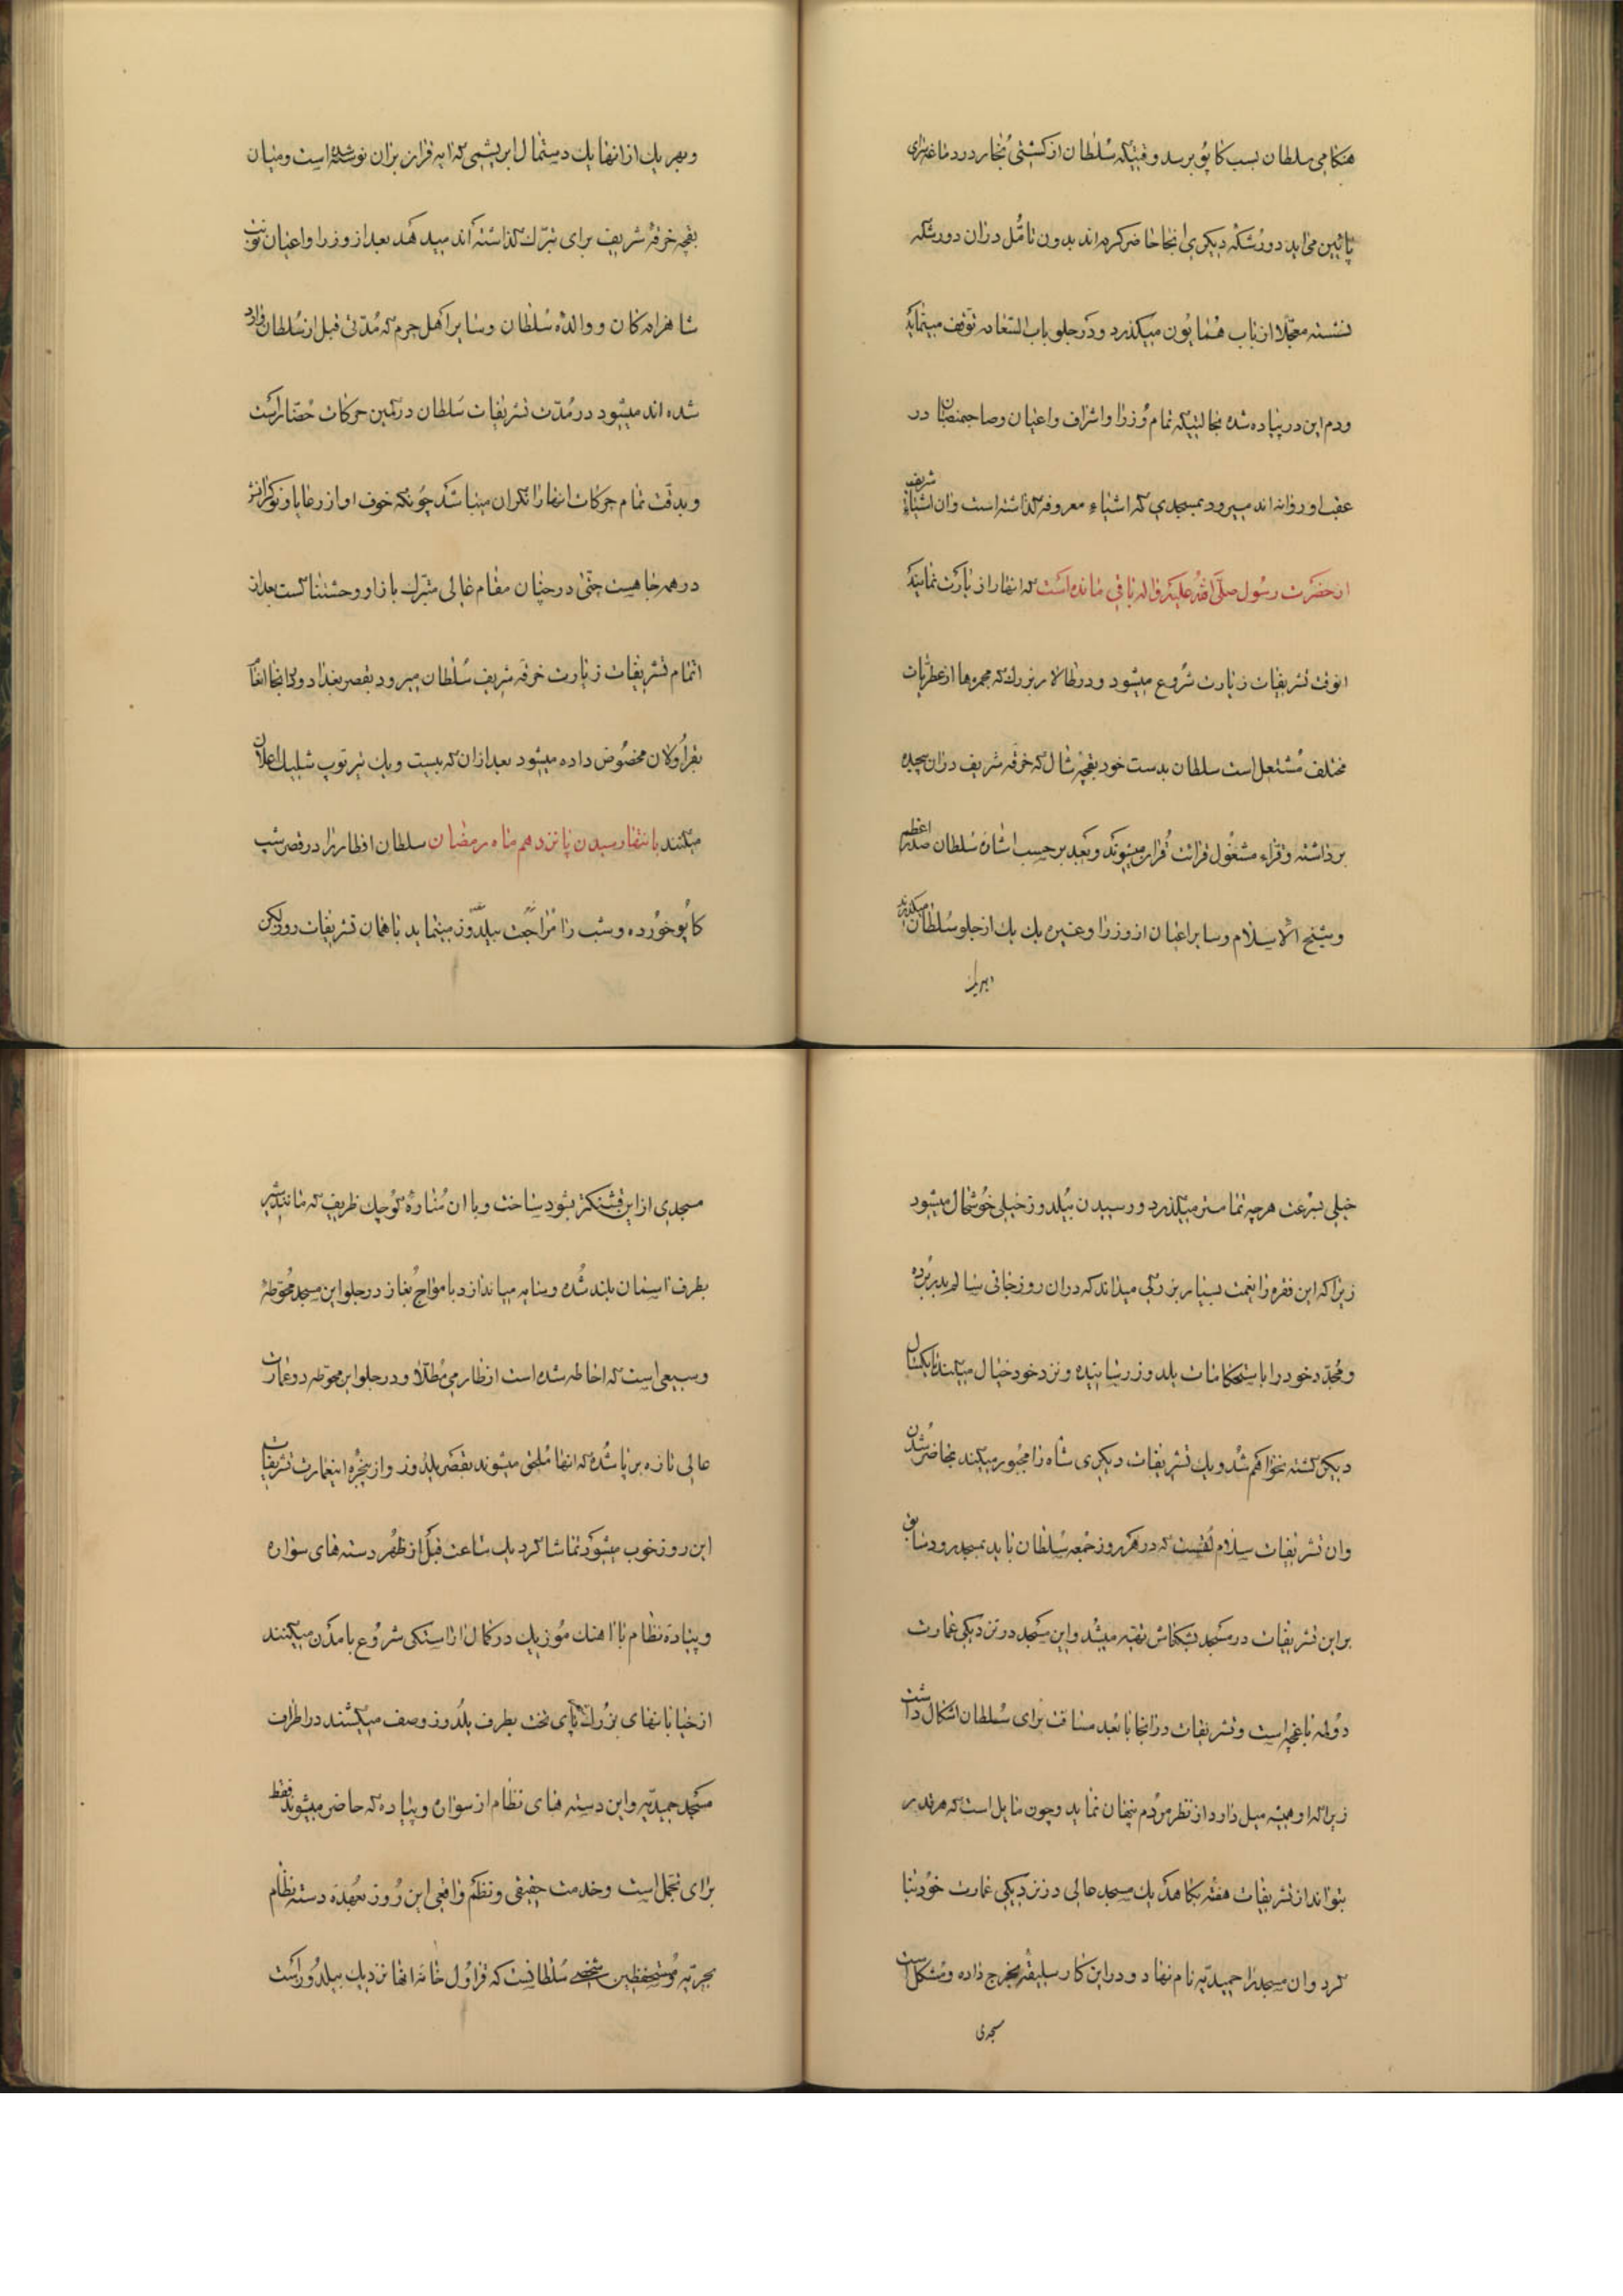 هنکامی سلطان بسب کاپو برسد وقتیکه سلطان از کشتی بخار در دماغه
پائین می اید دورشکه دیکری انجا حاضر کرده اند بدون تامّل دران دورشکه
نشسته معجّلا از باب همایون میکذرد و در جلو باب السّعاده توقف مینماید
ودم این در پیاده شده بحالتیکه تمام وزرا واشراف واعیان وصاحبمنصبان در
عقب او روانه اند میرود بمسجدی که اشیاء معروفه کذاشته است وان اشیاء شریف
از حضرت رسول صلّی الله علیه واله باقی مانده است که انها را زیارت نمایند
انوقت تشریفات زیارت شروع میشود ودر طالار بزرك که مجمره ها از عطریات
مختلف مشتعل است سلطان بدست خود بقچه شال که خرقه شریف دران پیچیده
برداشته وقراء مشغول قرائت قران میشوند وبعد برحسب اشاره سلطان صدر اعظم
وشیخ الاسلام وسایر اعیان از وزرا وغیره یك یك از جلو سلطان میکذرند
وبهریك
وبهر یك از انها یك دستمال ابریشمی که ایه قران بران نوشته شده است ومیان
بقچه خرقه شریف برای تبرّك کذاشته اند میدهد بعد از وزرا واعیان نوبت
شاهزادکان ووالده سلطان وسایر اهل حرم که مدّتی قبل از سلطان وارد
شده اند میشود در مدّت تشریفات سلطان در کمین حرکات حضّار است
وبدقت تمام حرکات انها را نکران میباشد چونکه خوف او از رعایا ونوکرانش
در همه جا هست حتّی در چنان مقام عالی متبرّك باز او وحشتناکست بعد از
اتمام تشریفات زیارت خرقه شریف سلطان میرود بقصر بغداد ودر انجا انعام
بقراولان مخصوص داده میشود بعد ازان که بیست ویك تیر توپ شلیك اعلان
میکنند بانتها رسیدن پانزدهم ماه رمضان سلطان افطار را در قصر سب
کاپو خورده وشب را مراجعت بیلدوز مینماید با همان تشریفات روز لیکن
خیلی بسرعت هرچه تمامتر میکذرد ورسیدن بیلدوز خیلی خوشحال میشود
زیرا که این فقره را نعمت بسیار بزرکی میداند که دران روز جانی سالم بدر برده
ومجدّد خود را باستحکامات یلدوز رسانیده ونزد خود خیال میکند تا یکسال
دیکر کشته نخواهم شد ویك تشریفات دیکری شاه را مجبور میکند بحاضر شدن
وان تشریفات سلام لقیست که در هر روز جمعه سلطان باید بمسجد رود سابق
براین تشریفات در مسجد بشکطاش تهیه میشد واین مسجد در نزدیکی عمارت
دولمه باغچه است وتشریفات در انجا با بعد مسافت برای سلطان اشکال داشت
زیرا که او همیشه میل دارد از نظر مردم پنهان نماید وچون مایل است که هرقدر
بتواند از تشریفات هفته بکاهد یك مسجد عالی در نزدیکی عمارت خود بنا
کرد وان مسجد را حمیدیّه نام نهاد ودر این کار سلیقه بخرج داده ومشکل است
مسجدی
مسجدی از این قشنکتر بشود ساخت وبا ان مناره کوچك ظریف که مانند تیر
بطرف اسمان بلند شده وسایه میاندازد بامواج بغاز در جلو این مسجد محوطه
وسیعی است که احاطه شده است از نظارمی مطلّا ودر جلو این محوطه دو عمارت
عالی تازه برپا شده که انها ملحق میشوند بقصر یلدوز واز پنجره این عمارت تشریفات
این روز خوب میشود تماشا کرد یك ساعت قبل از ظهر دسته های سواره
وپیاده نظام با اهنك موزیك در کمال اراستکی شروع بامدن میکنند
از خیابانهای بزرك پای تخت بطرف یلدوز وصف میکشند در اطراف
مسجد حمیدیّه واین دسته های نظام از سواره وپیاده که حاضر میشوند فقط
برای تجمل است وخدمت حقیقی ونظم واقعی این روز بعهده دسته نظام
بحریّه ومستحفظین شخصی سلطانست که قراول خانه انها نزدیك بیلدوز است